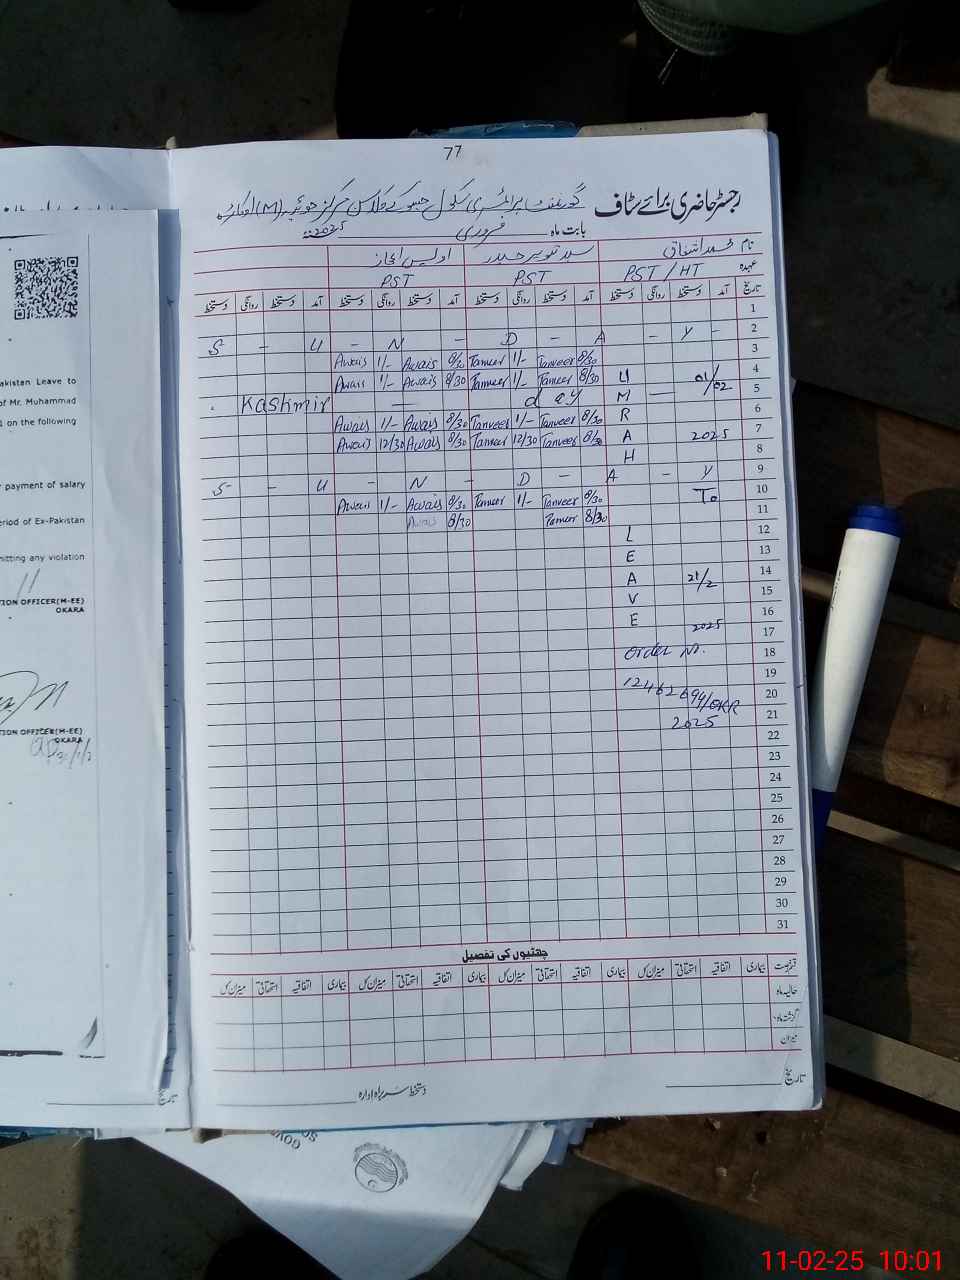 77
رجسٹر حاضری برائے سٹاف گورنمنٹ پرائمری سکول جسوکے کلاس مرکز حویلی (M) اوکاڑہ
بابت ماہ فروری 2025ء
نام محمد اشفاق سید تنویر حیدر اویس اعجاز
عہدہ PST / HT PST PST
تاریخ آمد دستخط روانگی دستخط آمد دستخط روانگی دستخط آمد دستخط روانگی دستخط آمد دستخط روانگی دستخط
1
S - U - N - D - A - Y - 2
Awais 1/- Awais 8/30 Tanveer 1/- Tanveer 8/30 3
Awais 1/- Awais 8/30 Tanveer 1/- Tanveer 8/30 U 01/02 4
Kashmir — day M — 5
Awais 1/- Awais 8/30 Tanveer 1/- Tanveer 8/30 R 6
Awais 12/30 Awais 8/30 Tanveer 12/30 Tanveer 8/30 A 2025 7
H 8
S - U - N - D - A - Y 9
Awais 1/- Awais 8/30 Tanveer 1/- Tanveer 8/30 To 10
Awais 8/30 Tanveer 8/30 11
L 12
E 13
A 21/2 14
V 15
E 16
2025 17
Order No. 18
19
12462694/OKR 20
2025 21
22
23
24
25
26
27
28
29
30
31
چھٹیوں کی تفصیل
بیماری اتفاقیہ استحقاقی میزان کل بیماری اتفاقیہ استحقاقی میزان کل بیماری اتفاقیہ استحقاقی میزان کل بیماری اتفاقیہ استحقاقی میزان کل
حالیہ ماہ
گزشتہ ماہ
میزان
تاریخ دستخط سربراہ ادارہ
akistan Leave to
of Mr. Muhammad
on the following
payment of salary
eriod of Ex-Pakistan
mitting any violation
TION OFFICER(M-EE)
OKARA
TION OFFICER(M-EE)
OKARA
تاریخ
GOVE
SO
11-02-25 10:01